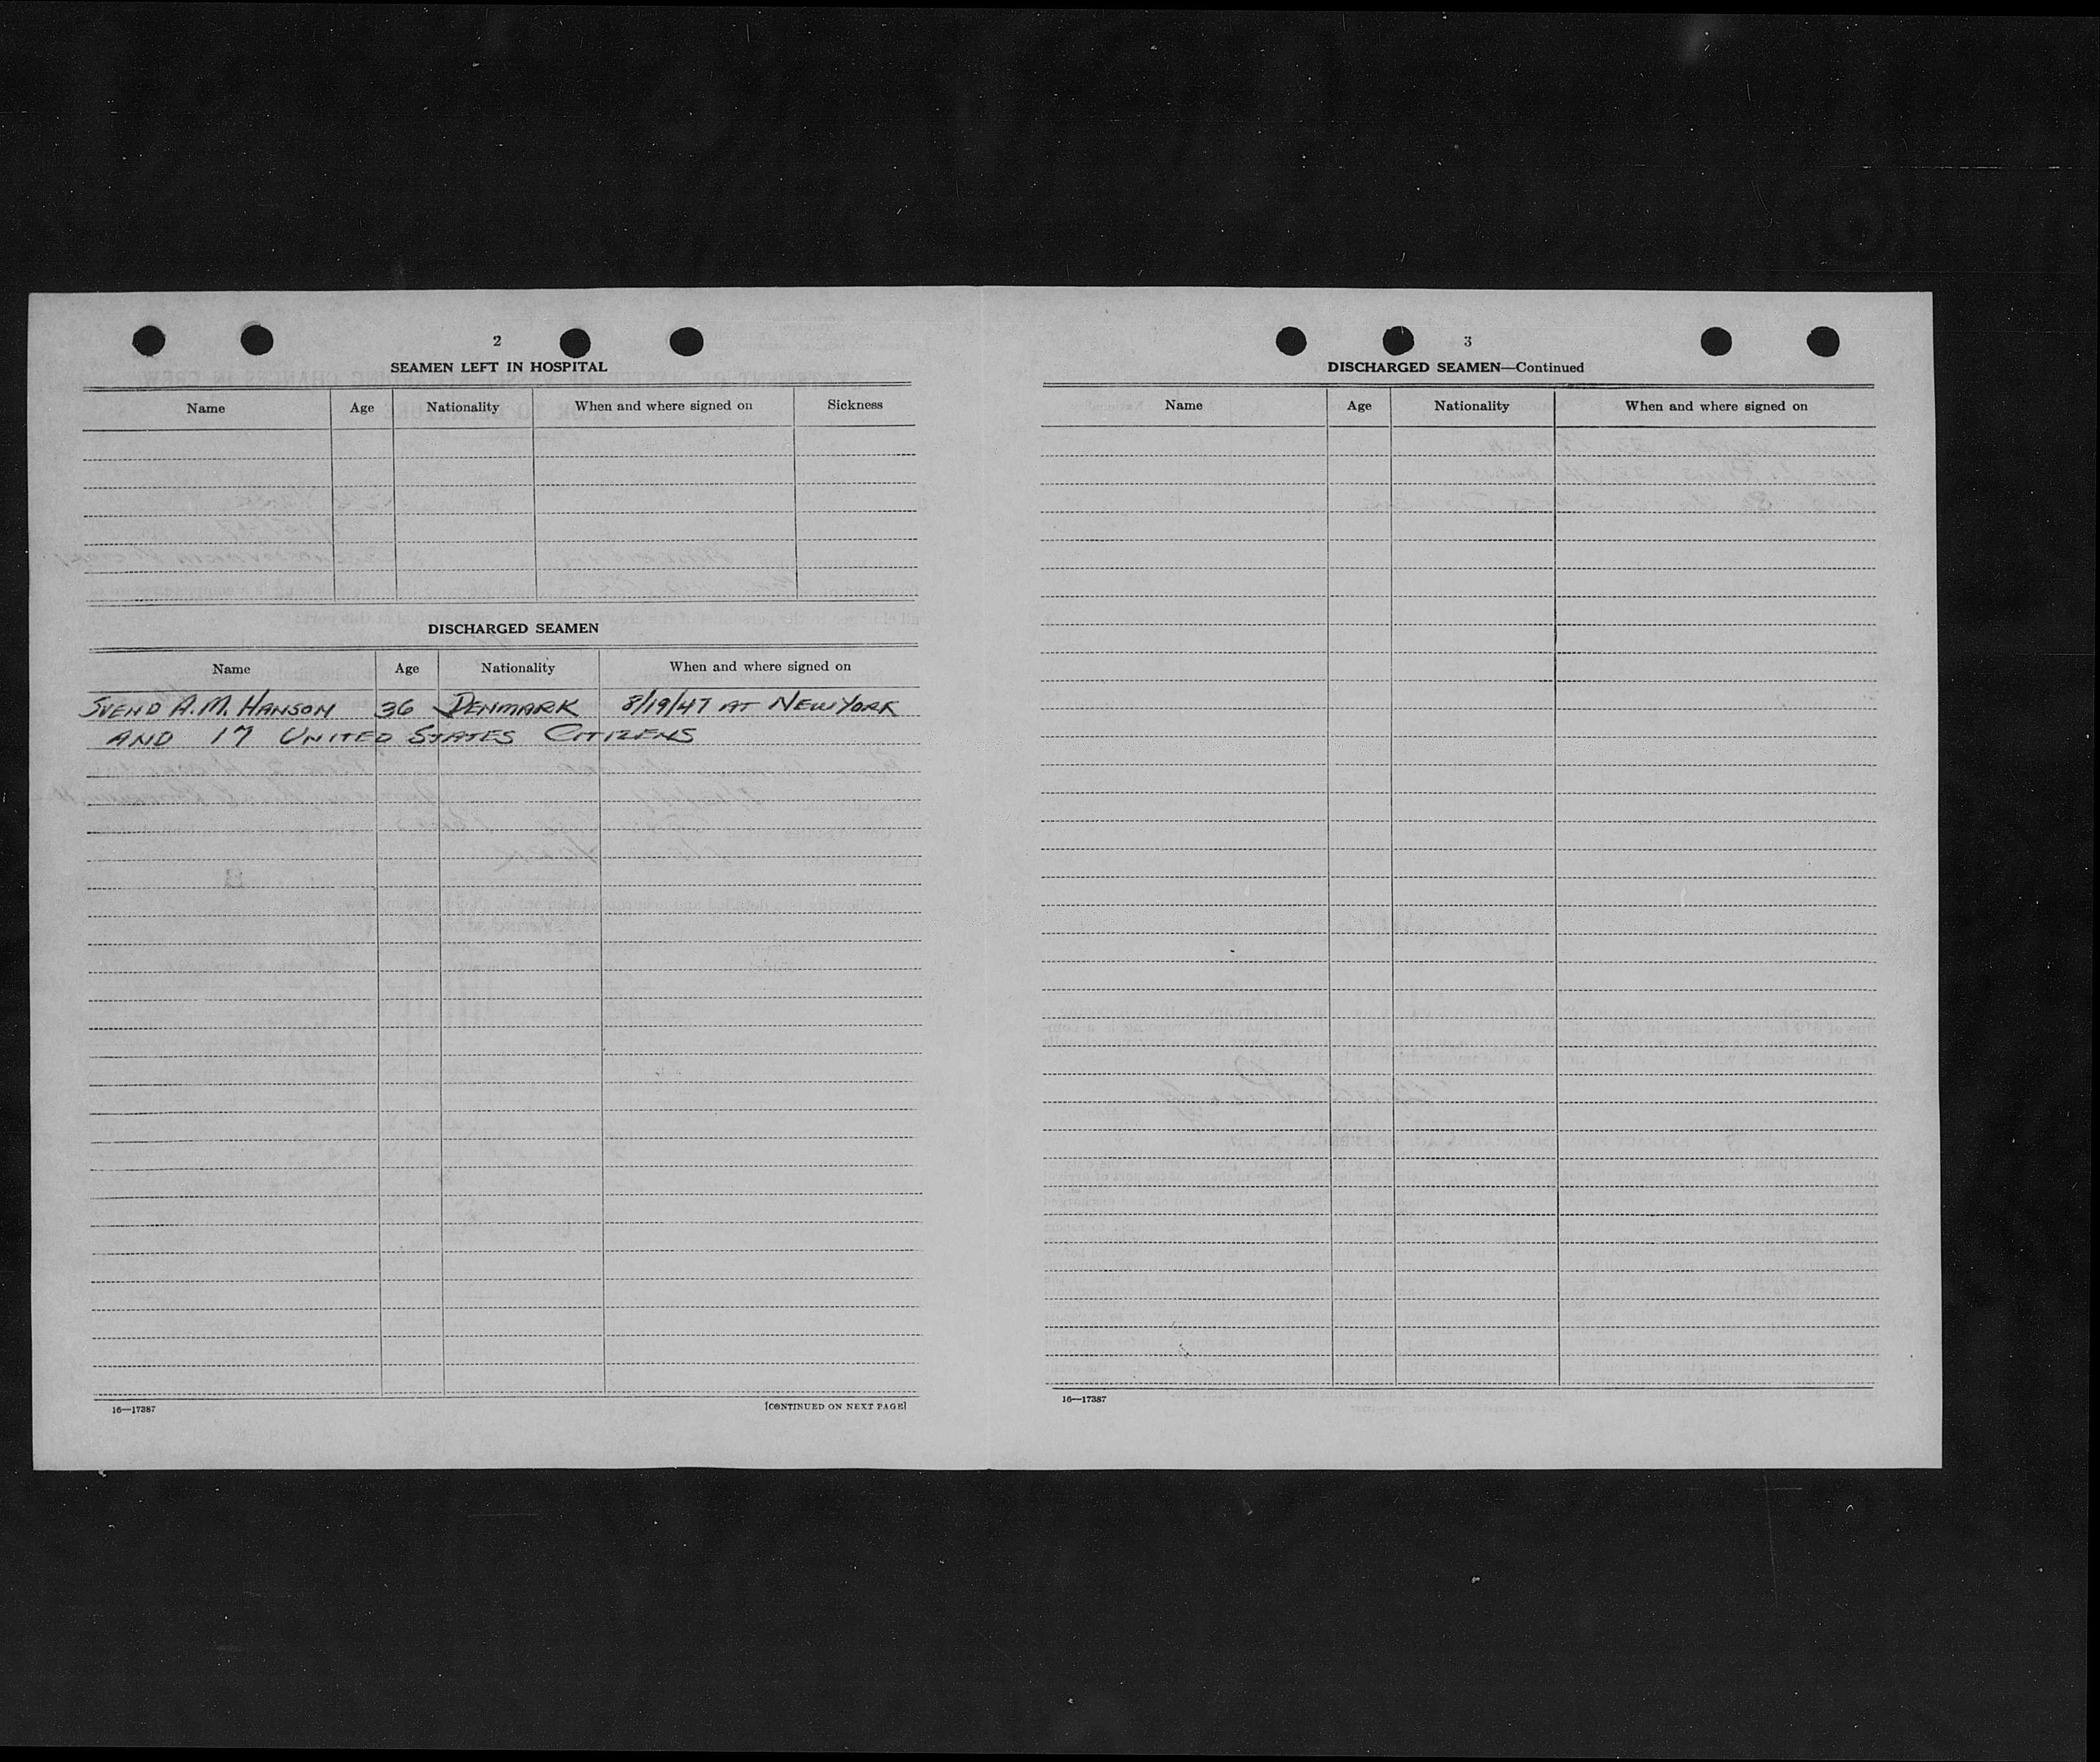 2
SEAMEN LEFT IN HOSPITAL
Name Age Nationality When and where signed on Sickness
DISCHARGED SEAMEN
Name Age Nationality When and where signed on
SVEND A.M. HANSON 36 DENMARK 8/19/47 AT NEW YORK
AND 17 UNITED STATES CITIZENS
16—17387 [CONTINUED ON NEXT PAGE]
3
DISCHARGED SEAMEN—Continued
Name Age Nationality When and where signed on
16—17387